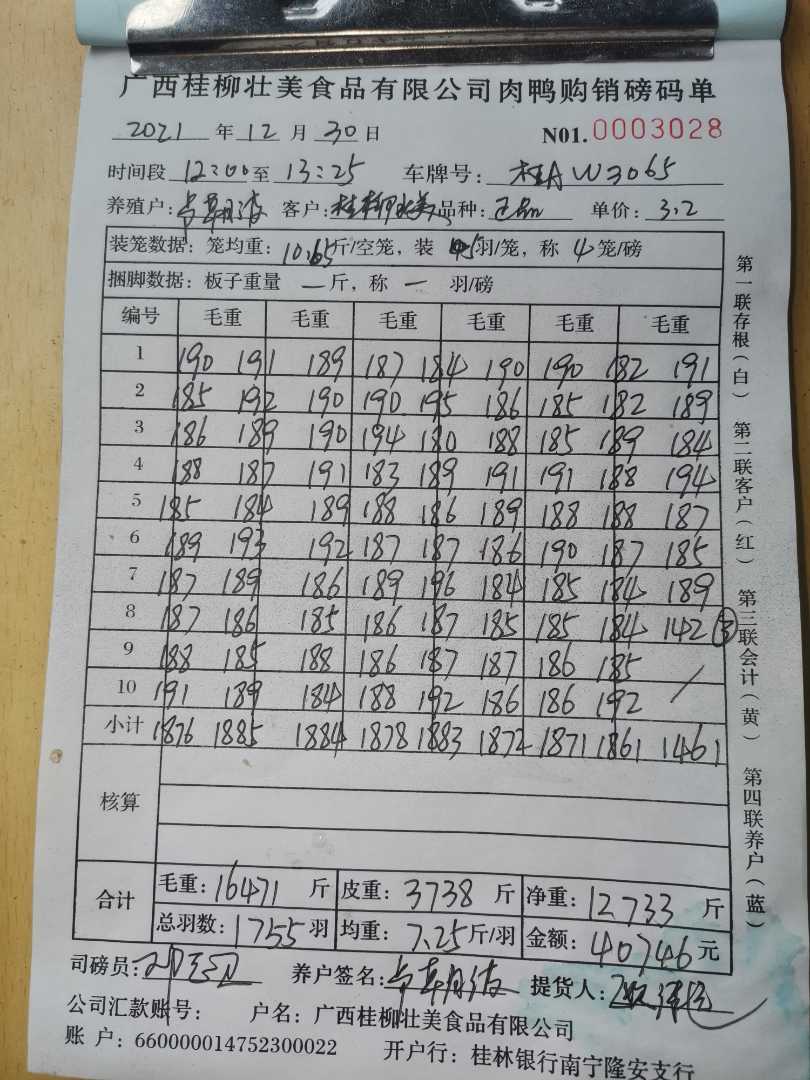 广西桂柳壮美食品有限公司肉鸭购销磅码单
2021 年 12 月 30 日 N01. 0003028
时间段 12:00 至 13:25 车牌号: 桂A W3065
养殖户: 客户: 桂柳壮美 品种: 正品 单价: 3.2
装笼数据: 笼均重: 10.65 斤/空笼, 装 5 羽/笼, 称 4 笼/磅
捆脚数据: 板子重量 — 斤, 称 — 羽/磅
编号 毛重 毛重 毛重 毛重 毛重 毛重
1 190 191 189 187 184 190 190 182 191
2 185 192 190 190 195 186 185 182 189
3 186 189 190 194 180 188 185 189 184
4 188 187 191 183 189 191 191 188 194
5 185 184 189 188 186 189 188 188 187
6 189 193 192 187 187 186 190 187 185
7 187 189 186 189 196 184 185 184 189
8 187 186 185 186 187 185 185 184 142 ③
9 188 185 188 186 187 187 186 185 /
10 191 189 184 188 192 186 186 192
小计 1876 1885 1884 1878 1883 1872 1871 1861 1461
核算
合计 毛重: 16471 斤 皮重: 3738 斤 净重: 12733 斤
总羽数: 1755 羽 均重: 7.25 斤/羽 金额: 40746 元
司磅员: 养户签名: 提货人:
公司汇款账号: 户名: 广西桂柳壮美食品有限公司
账 户: 660000014752300022 开户行: 桂林银行南宁隆安支行
第一联存根(白) 第二联客户(红) 第三联会计(黄) 第四联养户(蓝)